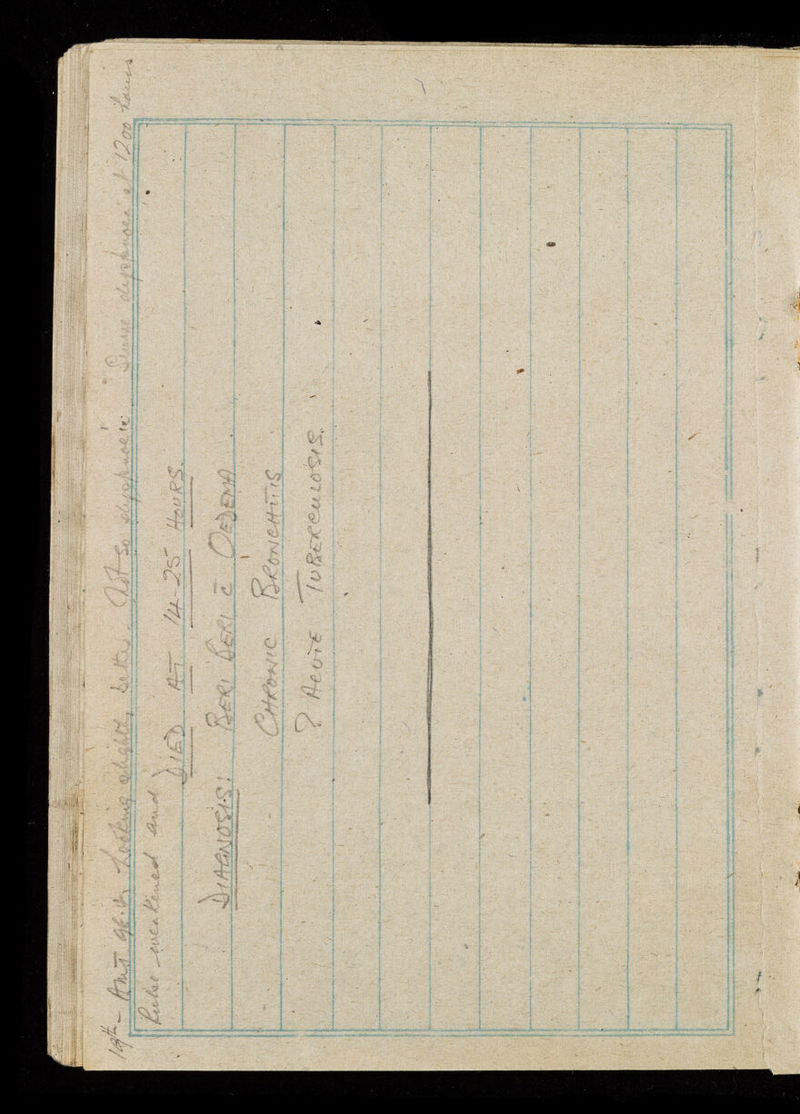 19th - Looking slightly better. Not so dyspnoeic. Severe dyspnoea at 1200 hours
Pulse weakened and
DIED AT 14-25 HOURS.
DIAGNOSIS: BERI BERI c̄ OEDEMA
CHRONIC BRONCHITIS
? ACUTE TUBERCULOSIS.